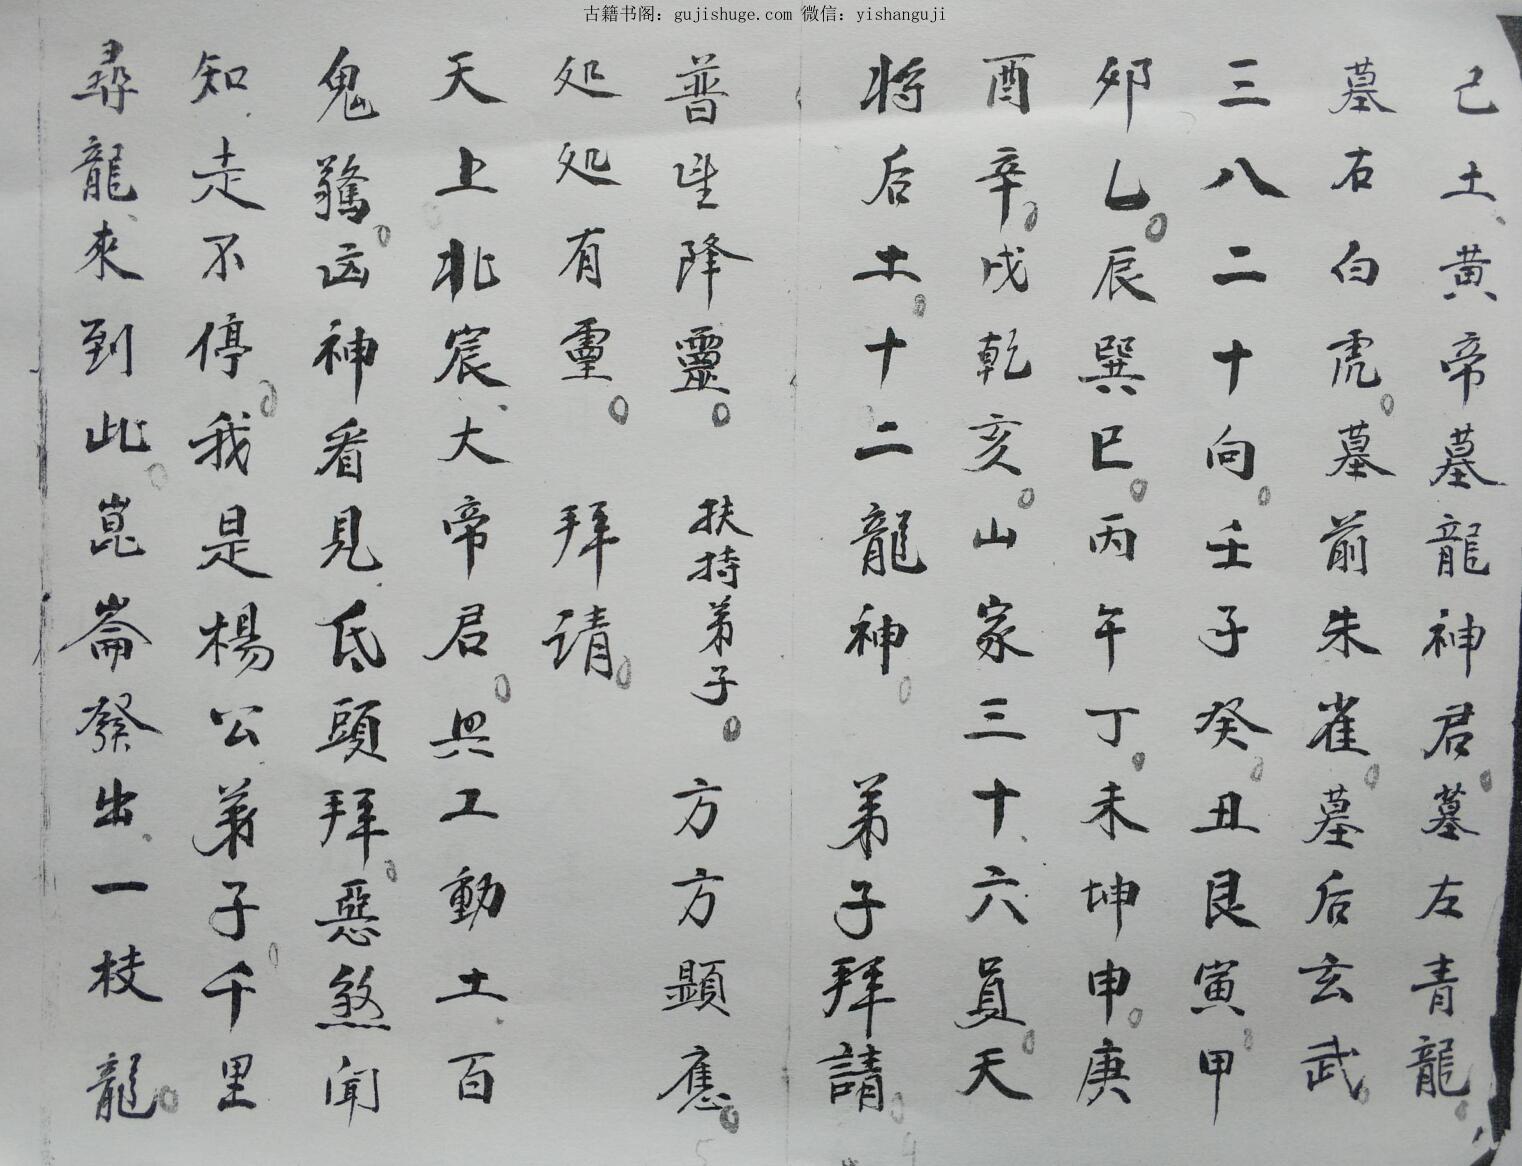 古籍书阁：gujishuge.com 微信：yishanguji
己土黄帝墓龍神君。墓左青龍。
墓右白虎。墓前朱雀。墓后玄武。
三八二十向。壬子癸。丑艮寅。甲
夘乙。辰巽巳。丙午丁。未坤申。庚
酉辛。戌乾亥。山家三十六員。天
将后土。十二龍神。弟子拜請。
普降靈。扶持弟子。方方顕應。
处处有靈。拜请。
天上北宸大帝君。興工動土百
鬼驚。凶神看見低頭拜。惡煞聞
知走不停。我是楊公弟子。千里
尋龍來到此。崑崙發出一枝龍。